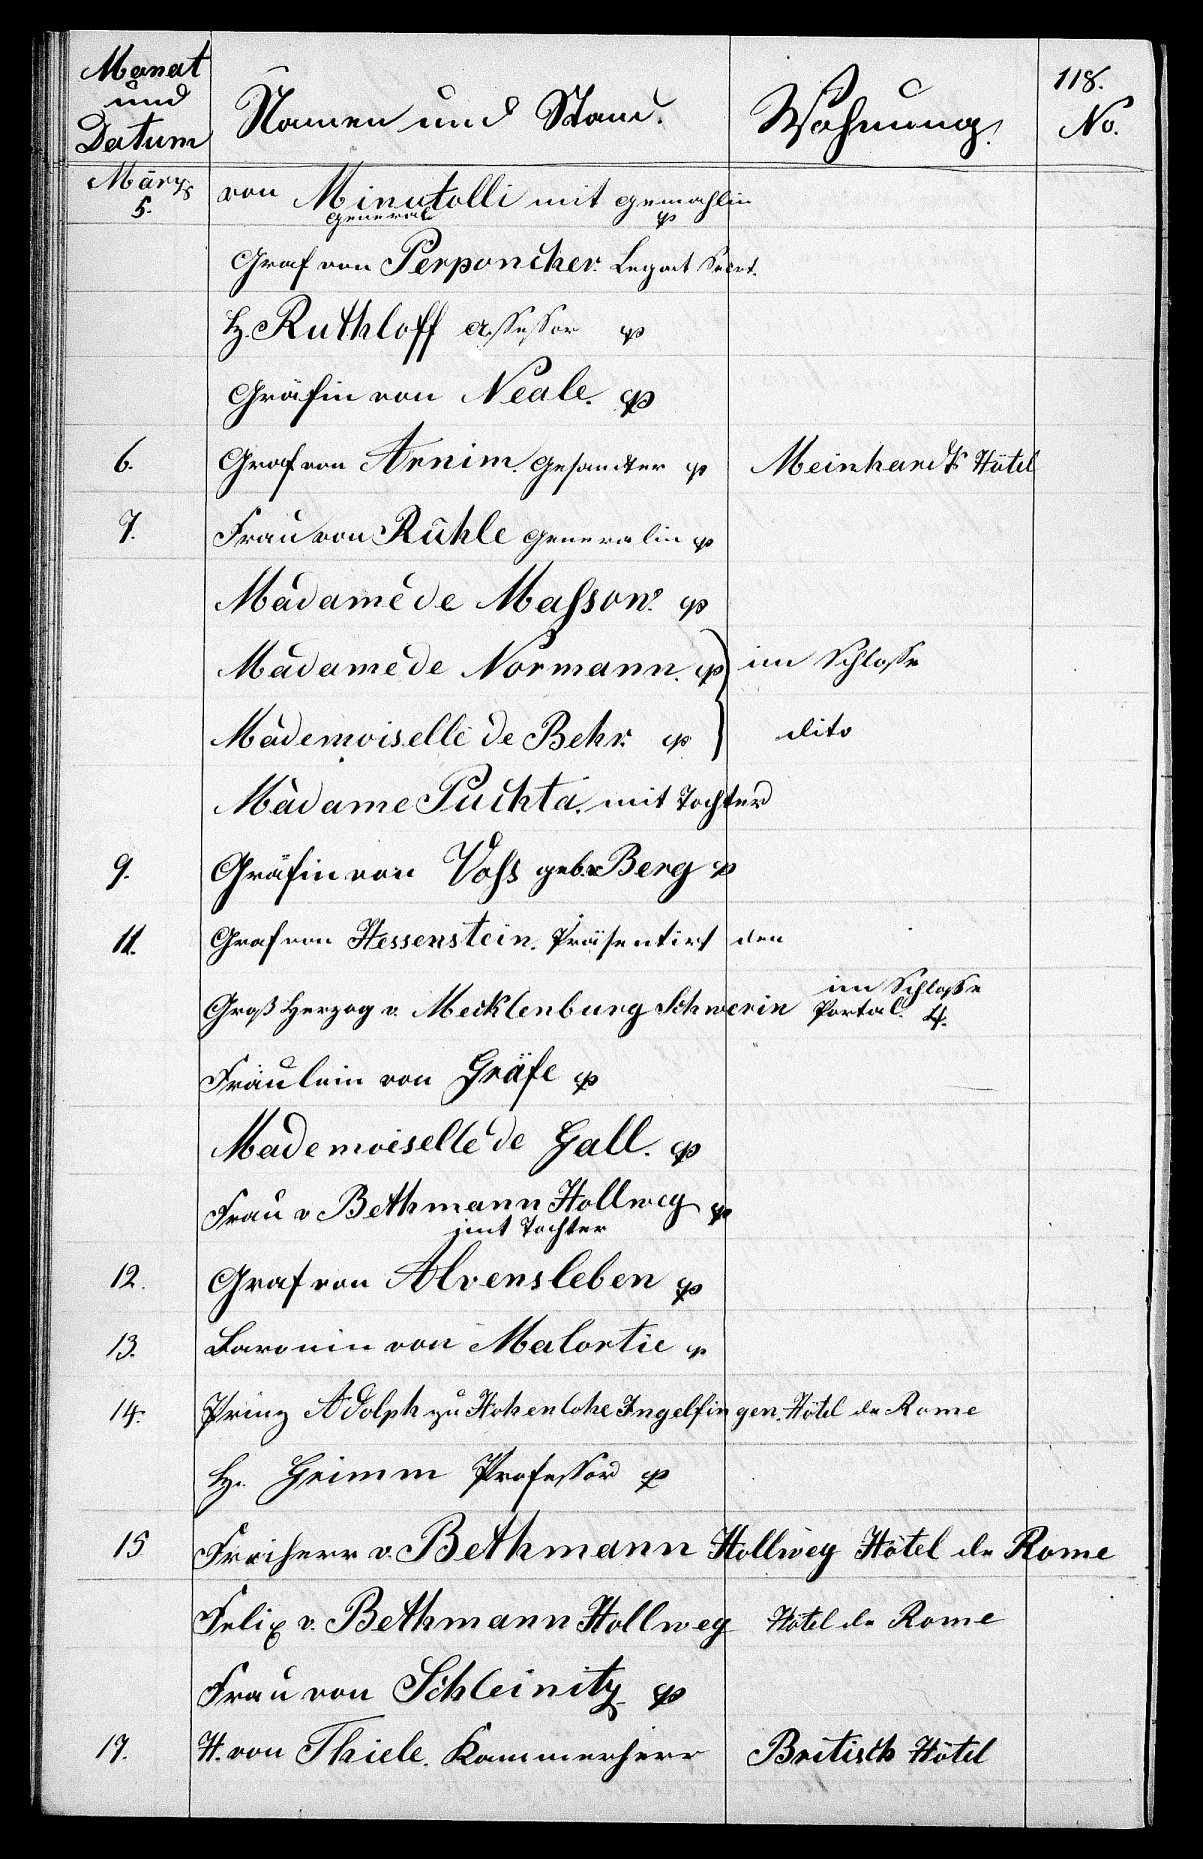 118.
Monat und Datum Namen und Stand. Wohnung. No.
März 5. von Minutolli mit Gemahlin
General
Graf von Perponcher. Legat Secret.
H. Ruthloff Assessor
Gräfin von Neale.
6. Graf von Arnim. Gesandter Meinhardts Hôtel
7. Frau von Rühle Generalin
Madame de Masson.
Madame de Normann. im Schlosse
Mademoiselle de Behr. dito
Madame Puchta. mit Tochter
9. Gräfin von Voss geb. v Berg
11. Graf von Hessenstein. Präsentirt den
Groß Herzog v. Mecklenburg Schwerin im Schlosse
Portal. 4.
Fräulein von Gräfe
Mademoiselle de Gall.
Frau v Bethmann Hollweg
mit Tochter
12. Graf von Alvensleben
13. Baronin von Malortie
14. Prinz Adolph zu Hohenlohe Ingelfingen. Hôtel de Rome
H. Grimm Professor
15 Freiherr v. Bethmann Hollweg Hôtel de Rome
Felix v. Bethmann Hollweg Hôtel de Rome
Frau von Schleinitz
17. H. von Thiele. Kammerherr Britisch Hôtel